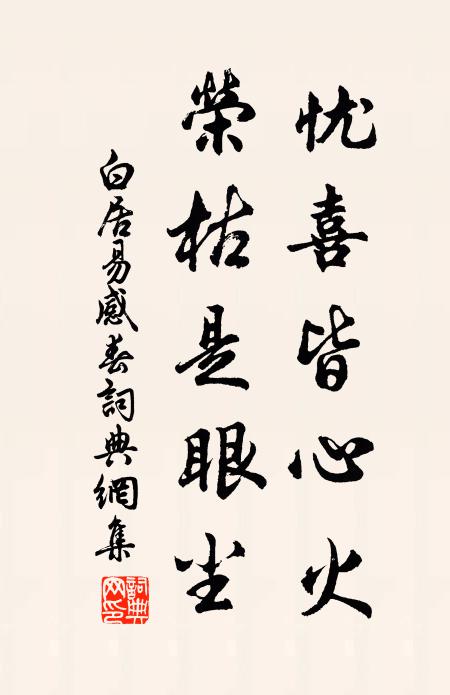 忧喜皆心火
榮枯是眼尘
白居易感春詞典網集
詞典网印